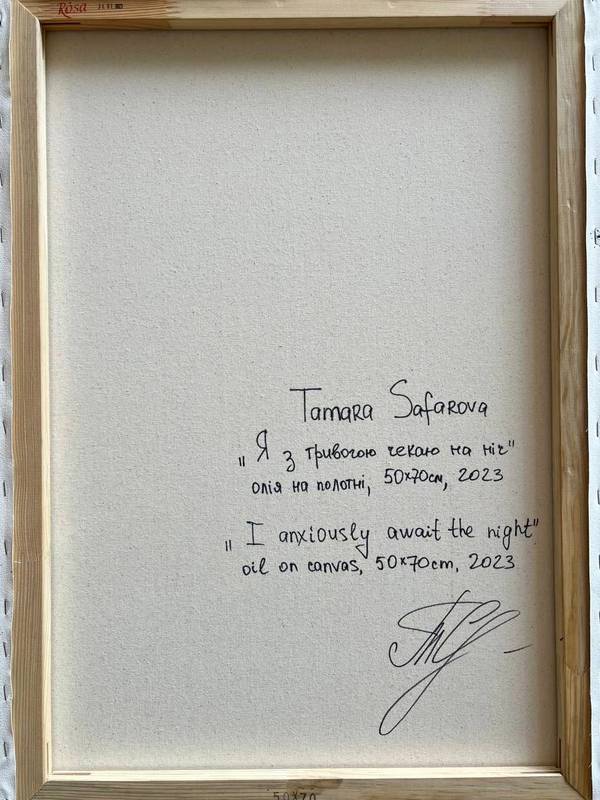 Rosa
Tamara Safarova
„Я з тривогою чекаю на ніч"
олія на полотні, 50x70см, 2023
„I anxiously await the night"
oil on canvas, 50x70cm, 2023
50X70